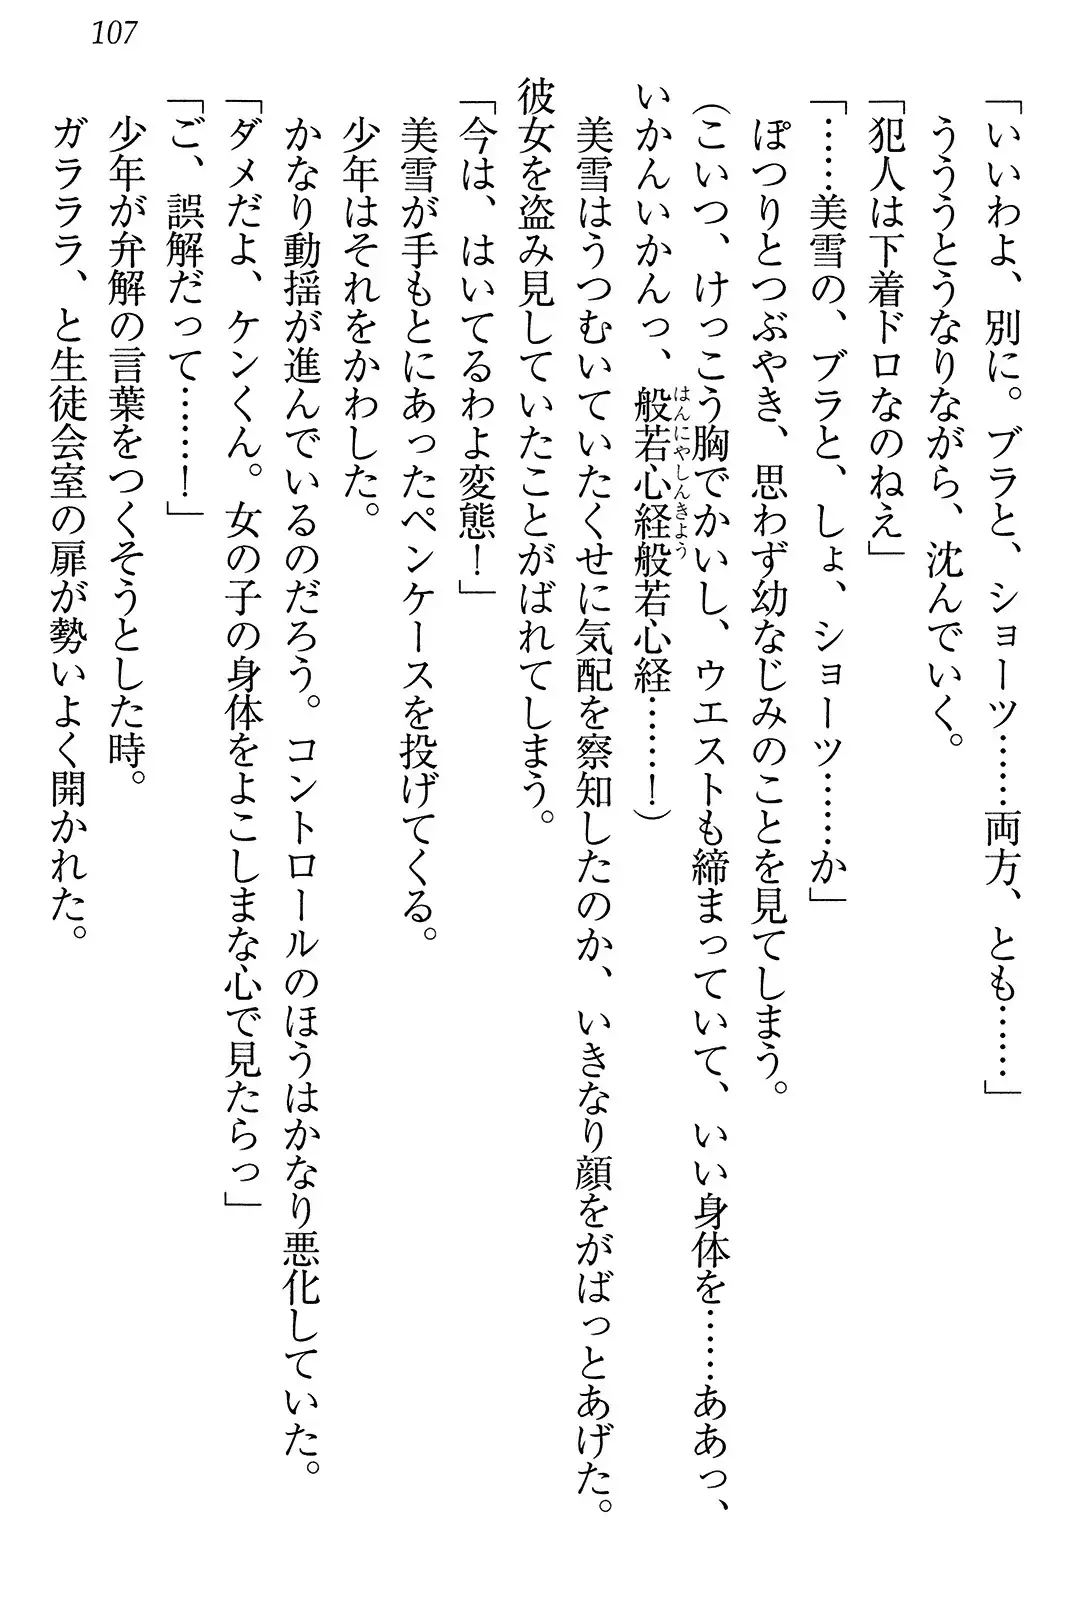 107
「いいわよ、別に。ブラと、ショーツ……両方、とも……」
うううとうなりながら、沈んでいく。
「犯人は下着ドロなのねえ」
「……美雪の、ブラと、しょ、ショーツ……か」
ぽつりとつぶやき、思わず幼なじみのことを見てしまう。
（こいつ、けっこう胸でかいし、ウエストも締まっていて、いい身体を……ああっ、
いかんいかんっ、般若心経般若心経……！）
はんにゃしんきょう
美雪はうつむいていたくせに気配を察知したのか、いきなり顔をがばっとあげた。
彼女を盗み見していたことがばれてしまう。
「今は、はいてるわよ変態！」
美雪が手もとにあったペンケースを投げてくる。
少年はそれをかわした。
かなり動揺が進んでいるのだろう。コントロールのほうはかなり悪化していた。
「ダメだよ、ケンくん。女の子の身体をよこしまな心で見たらっ」
「ご、誤解だって……！」
少年が弁解の言葉をつくそうとした時。
ガラララ、と生徒会室の扉が勢いよく開かれた。